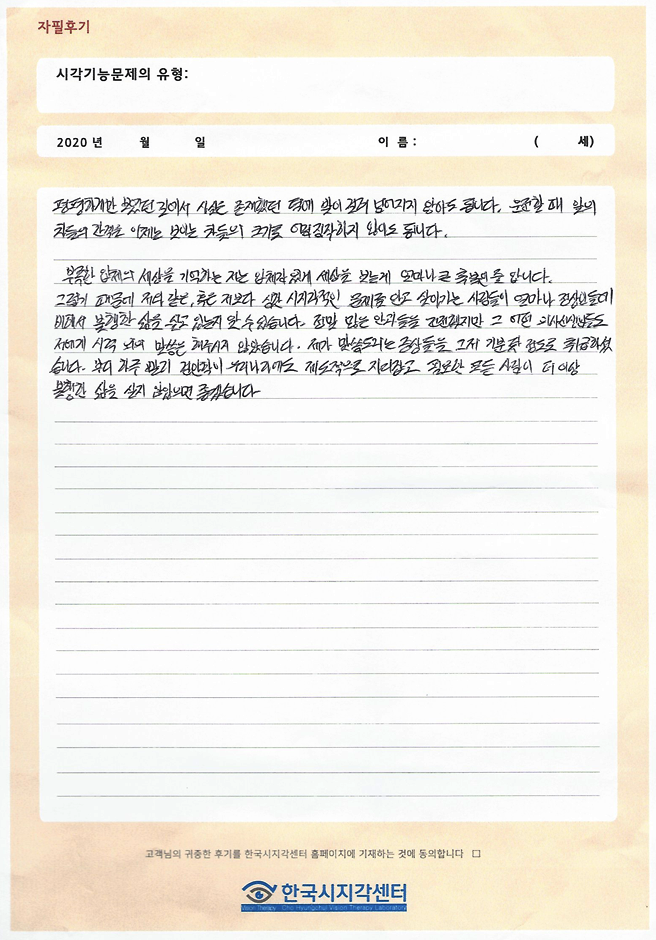 자필후기
시각기능문제의 유형:
2020 년 월 일 이 름 : ( 세)
평평하게만 보였던 길에서 사실은 존재했던 턱에 발이 걸려 넘어지지 않아도 됩니다. 운전할 때 앞의
차들의 간격을 이제는 보이는 차들의 크기로 어림짐작하지 않아도 됩니다.
부족한 입체의 세상을 기억하는 저는 입체감 없게 세상을 보는게 얼마나 큰 흑백인 줄 압니다.
그렇기 때문에 저와 같은, 혹은 저보다 심한 시지각적인 문제를 안고 살아가는 사람들이 얼마나 정상인들에
비해서 불행한 삶을 살고 있는지 알 수 있습니다. 정말 많은 안과들을 전전했지만 그 어떤 의사선생님들도
저에게 시력 외의 말씀은 해주시지 않았습니다. 제가 말씀드리는 증상들을 그저 기분 탓 정도로 취급하셨
습니다. 부디 하루 빨리 검안학이 우리나라에도 제도적으로 자리잡고 필요한 모든 사람이 더 이상
불행한 삶을 살지 않았으면 좋겠습니다
고객님의 귀중한 후기를 한국시지각센터 홈페이지에 기재하는 것에 동의합니다 □
한국시지각센터
Vision Therapy Cho Hyungchul Vision Therapy Laboratory